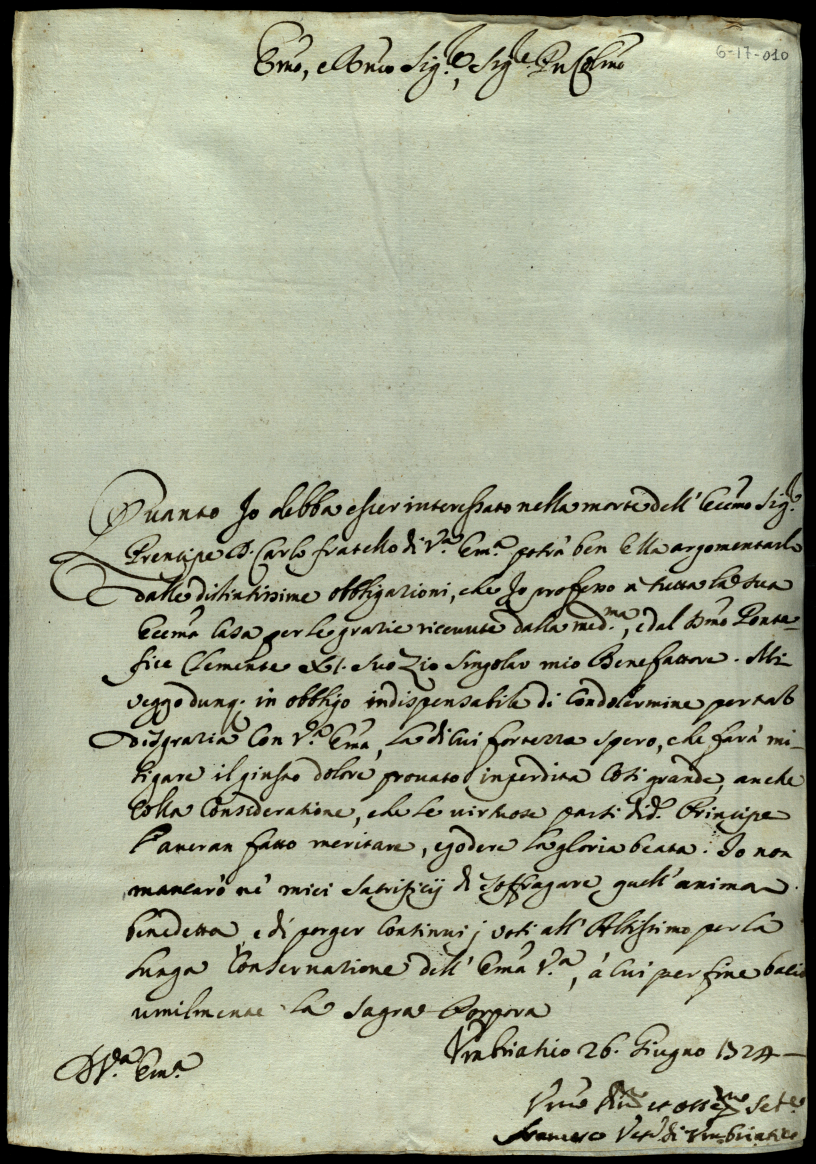 6-17-010
Emo, e Rmo Sig.re, Sig.re Pn Colmo
Quanto Io debba esser interessato nella morte dell' Eccmo Sig.re
Prencipe D. Carlo fratello di V.ra Em.a potrà ben Ella argomentarlo
dalle distintissime obbligazioni, che Io professo a tutta la sua
Eccma Casa per le grazie ricevute dalla med.ma, e dal Smo Ponte-
fice Clemente XI. suo Zio singolar mio Benefattore. Mi
veggo dunq; in obbligo indispensabile di Condolermine per tal
disgrazia Con V.ra Ema, La di lui fortezza spero, che farà mi-
tigare il giusto dolore provato in perdita Così grande, anche
Colla Consideratione, che le virtuose parti di d.o Principe
l'averan fatto meritare, e godere la gloria beata. Io non
mancarò né miei Sacrificij di soffragare quell'anima
benedetta, e di porger Continui j voti all' Altissimo per la
lunga Conservazione dell' Ema V.ra, à lui per fine bacio
umilmente la Sagra Porpora
Umbriatico 26. Giugno 1724
D V.ra Em.a
Umo Dmo et Obb.mo Ser.e
Francesco Vesc.o di Umbriatico